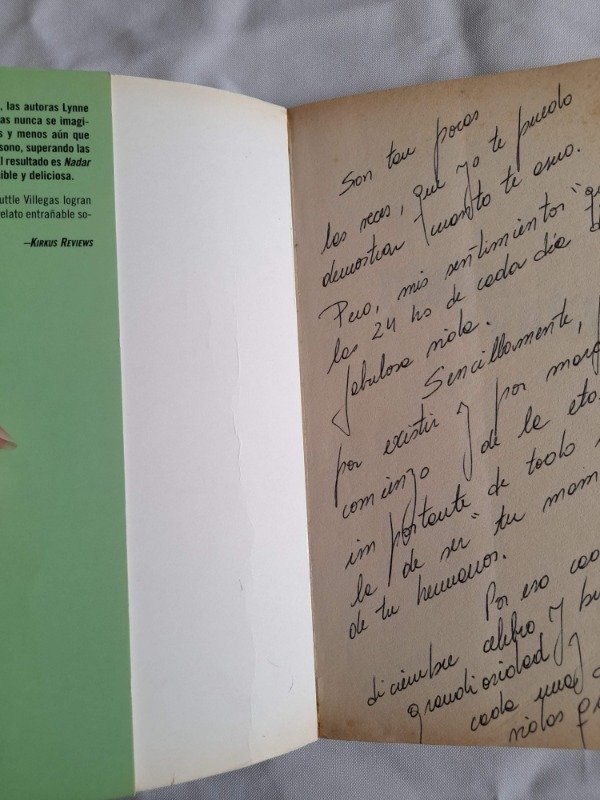 , las autoras Lynne
as nunca se imagi-
s y menos aún que
sono, superando las
l resultado es Nadar
ible y deliciosa.
uttle Villegas logran
relato entrañable so-
—KIRKUS REVIEWS
Son tan pocas
las veces, que yo te puedo
demostrar cuanto te amo.
Pero, mis sentimientos
las 24 hs de cada día
fabulosa vida.
Sencillamente,
por existir y por marc
comienzo de la eta
importante de todo
la de ser "tu mam
de tu hermanos.
Por eso cad
diciembre celebro y
grandiosidad y
cada una
vidas